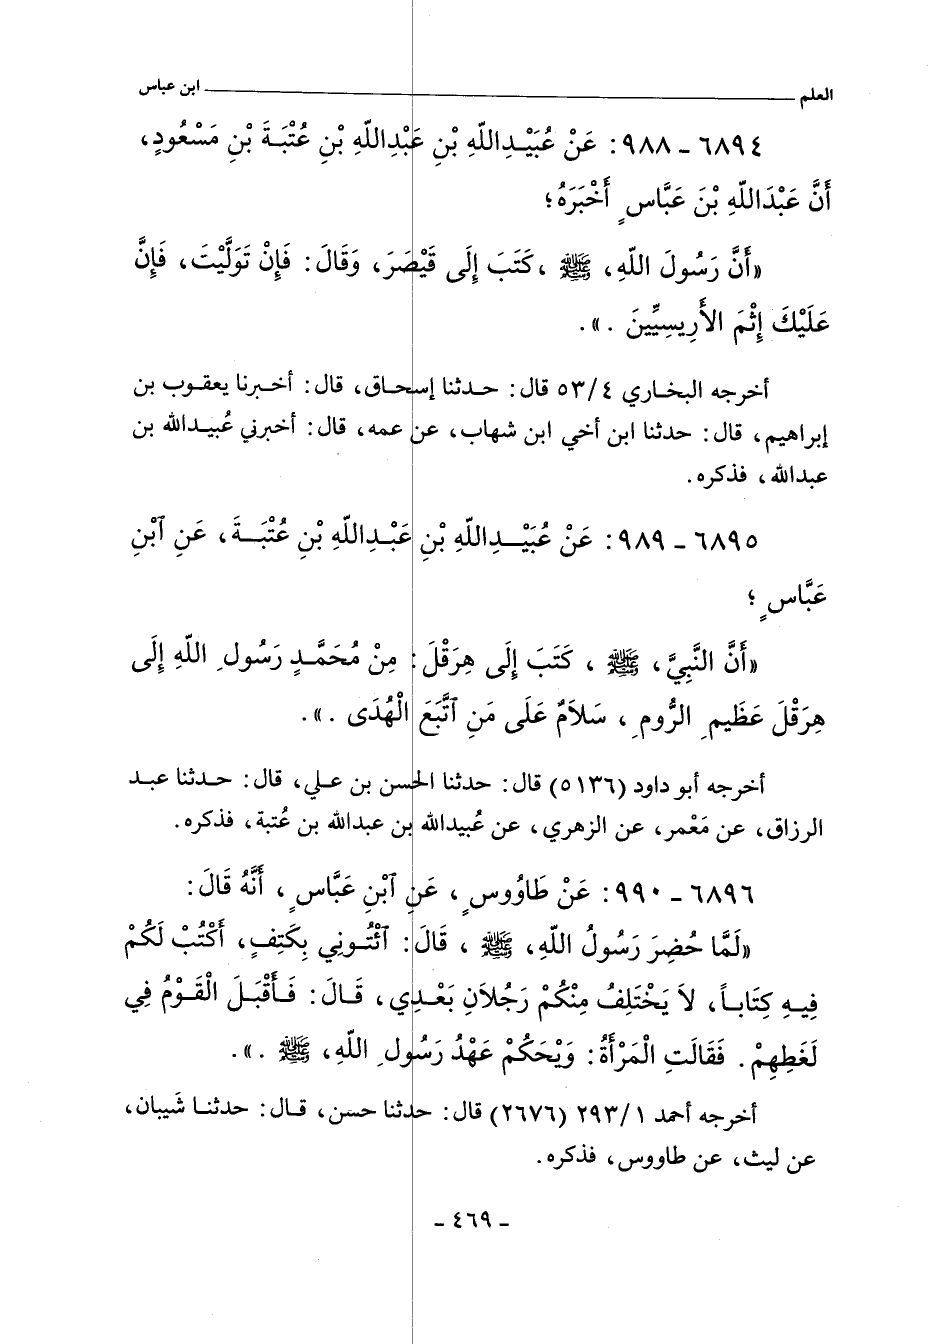 العلم ــــــــــــــــــــــــــــــــــــــــــــــــ ابن عباس
٦٨٩٤ ـ ٩٨٨: عَنْ عُبَيْـدِاللّهِ بْنِ عَبْدِاللّهِ بْنِ عُتْبَـةَ بْنِ مَسْعُودٍ،
أَنَّ عَبْدَاللّهِ بْنَ عَبَّاسٍ أَخْبَرَهُ؛
«أَنَّ رَسُولَ اللّهِ، ﷺ، كَتَبَ إِلَى قَيْصَرَ، وَقَالَ: فَإِنْ تَوَلَّيْتَ، فَإِنَّ
عَلَيْكَ إِثْمَ الأَرِيسِيِّينَ.».
أخرجه البخـاري ٥٣/٤ قال: حـدثنا إسحـاق، قال: أخـبرنا يعقـوب بن
إبراهيم، قال: حدثنا ابن أخي ابن شهاب، عن عمه، قال: أخبرني عُبيـدالله بن
عبدالله، فذكره.
٦٨٩٥ ـ ٩٨٩: عَنْ عُبَيْـدِاللّهِ بْنِ عَبْـدِاللّهِ بْنِ عُتْبَـةَ، عَنِ ٱبْنِ
عَبَّاسٍ؛
«أَنَّ النَّبِيَّ، ﷺ، كَتَبَ إِلَى هِرَقْلَ: مِنْ مُحَمَّدٍ رَسُولِ اللّهِ إِلَى
هِرَقْلَ عَظِيمِ الرُّومِ، سَلاَمٌ عَلَى مَنِ ٱتَّبَعَ الْهُدَى.».
أخرجه أبو داود (٥١٣٦) قال: حدثنا الحسن بن علي، قال: حـدثنا عبـد
الرزاق، عن مَعْمر، عن الزهري، عن عُبيدالله بن عبدالله بن عُتبة، فذكره.
٦٨٩٦ ـ ٩٩٠: عَنْ طَاوُوسٍ، عَنِ ٱبْنِ عَبَّاسٍ، أَنَّهُ قَالَ:
«لَمَّا حُضِرَ رَسُولُ اللّهِ، ﷺ، قَالَ: ٱئْتُـونِي بِكَتِفٍ، أَكْتُبْ لَكُمْ
فِيـهِ كِتَابـاً، لاَ يَخْتَلِفُ مِنْكُمْ رَجُلاَنِ بَعْـدِي، قَـالَ: فَـأَقْبَلَ الْقَوْمُ فِي
لَغَطِهِمْ. فَقَالَتِ الْمَرْأَةُ: وَيْحَكُمْ عَهْدُ رَسُولِ اللّهِ، ﷺ.».
أخرجه أحمد ٢٩٣/١ (٢٦٧٦) قال: حدثنا حسن، قـال: حدثنـا شَيبان،
عن ليث، عن طاووس، فذكره.
ـ ٤٦٩ ـ